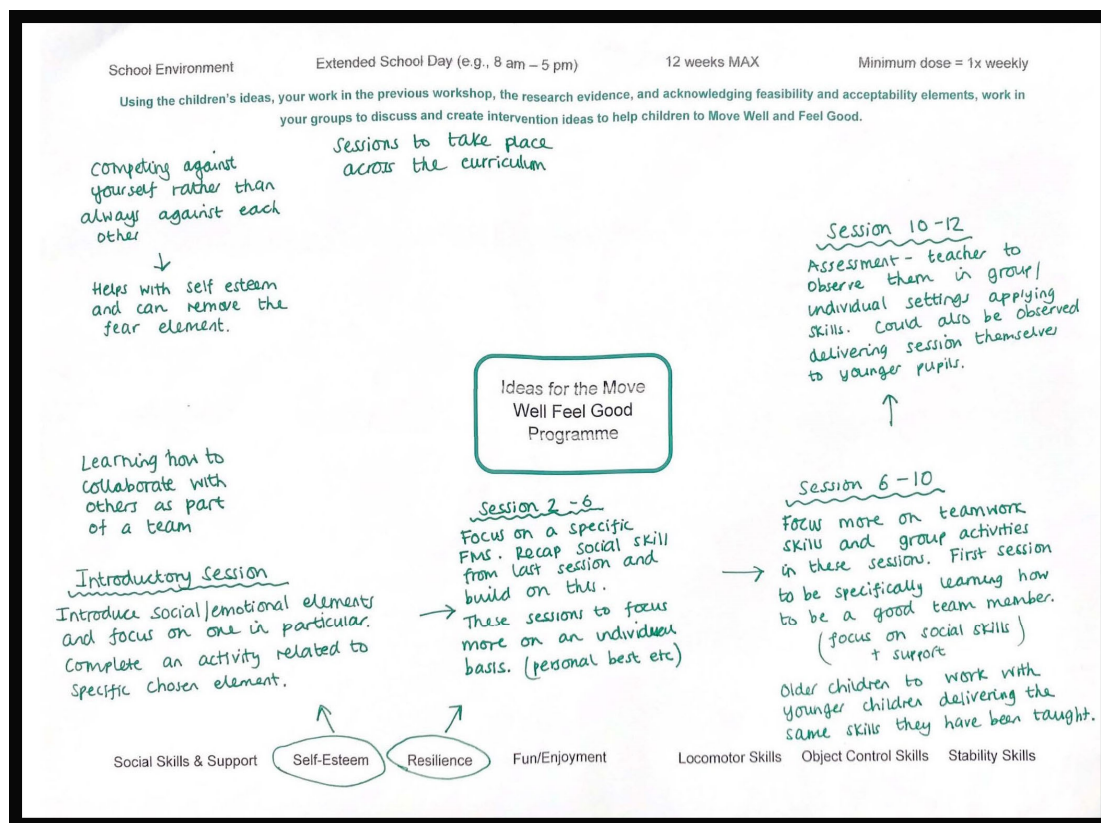 School Environment
Extended School Day (e.g., 8 am – 5 pm)
12 weeks MAX
Minimum dose = 1x weekly
Using the children's ideas, your work in the previous workshop, the research evidence, and acknowledging feasibility and acceptability elements, work in
your groups to discuss and create intervention ideas to help children to Move Well and Feel Good.
Sessions to take place
across the curriculum
Competing against
yourself rather than
always against each
other
↓
Helps with self esteem
and can remove the
fear element.
Learning how to
collaborate with
others as part
of a team
Ideas for the Move
Well Feel Good
Programme
Introductory Session
Introduce social/emotional elements
and focus on one in particular.
Complete an activity related to
specific chosen element.
→
Session 2-6
Focus on a specific
FMS. Recap social skill
from last session and
build on this.
These sessions to focus
more on an individual
basis. (personal best etc)
→
Session 6-10
Focus more on teamwork
skills and group activities
in these sessions. First session
to be specifically learning how
to be a good team member.
(focus on social skills)
+ support
Older children to work with
younger children delivering the
same skills they have been taught.
↑
Session 10-12
Assessment - teacher to
observe them in group/
individual settings applying
skills. Could also be observed
delivering session themselves
to younger pupils.
Social Skills & Support
Self-Esteem
Resilience
Fun/Enjoyment
Locomotor Skills
Object Control Skills
Stability Skills